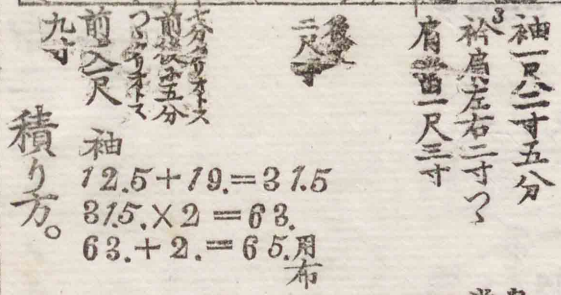 袖一尺二寸五分
衿肩左右二寸づゝ
肩當一尺三寸
後丈
二尺寸
七分クリオトス
前後五分
つゝクリオトス
前丈尺
九寸
積り方。
袖
12.5+19.=31.5
31.5.×2=63.
63.+2.=65.用布